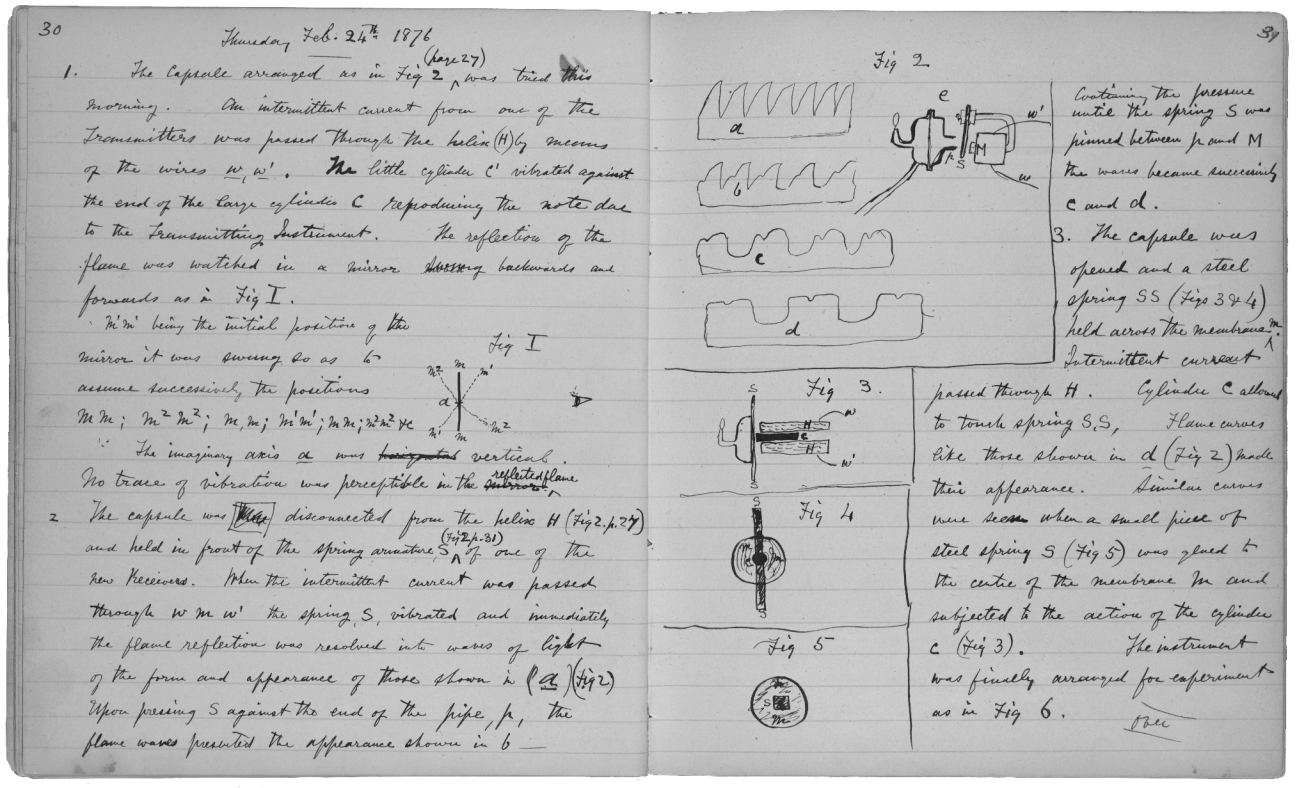 30
Thursday Feb. 24th 1876
1. The Capsule arranged as in Fig 2 ^ (page 27) was tried this
morning. An intermittent current from one of the
Transmitters was passed through the helix (H) by means
of the wires w, w'. The little cylinder C' vibrated against
the end of the large cylinder C reproducing the note due
to the Transmitting Instrument. The reflection of the
flame was watched in a mirror swung backwards and
forwards as in Fig I.
M'M' being the initial position of the
mirror it was swung so as to
assume successively the positions
M M; M² M²; M, M; M'M'; M M; M² M² &c
Fig I
m² m m'
a
m' m m²
The imaginary axis a was horizontal vertical.
No trace of vibration was perceptible in the mirror. ^ reflected flame
2 The capsule was disconnected from the helix H (Fig 2. p. 27)
and held in front of the spring armature, S ^ (Fig 2 p. 31) of one of the
new Receivers. When the intermittent current was passed
through w m w' the spring, S, vibrated and immediately
the flame reflection was resolved into waves of light
of the form and appearance of those shown in (a) (Fig 2)
Upon pressing S against the end of the pipe, p, the
flame waves presented the appearance shown in b —
31
Fig 2
a
b
c
d
e
w'
p
M
S
w
Continuing the pressure
until the spring S was
pinned between p and M
the waves became successively
c and d.
3. The capsule was
opened and a steel
spring SS (Figs 3 & 4)
held across the membrane ^ m.
Intermittent current
passed through H. Cylinder C allowed
to touch spring S, S, Flame curves
like those shown in d (Fig 2) made
their appearance. Similar curves
were seen when a small piece of
steel spring S (Fig 5) was glued to
the centre of the membrane M and
subjected to the action of the cylinder
C (Fig 3). The instrument
was finally arranged for experiment
as in Fig 6.
Over
Fig 3.
S
w
H
c
H
w'
S
Fig 4
S
m m
S
Fig 5
m
S
m